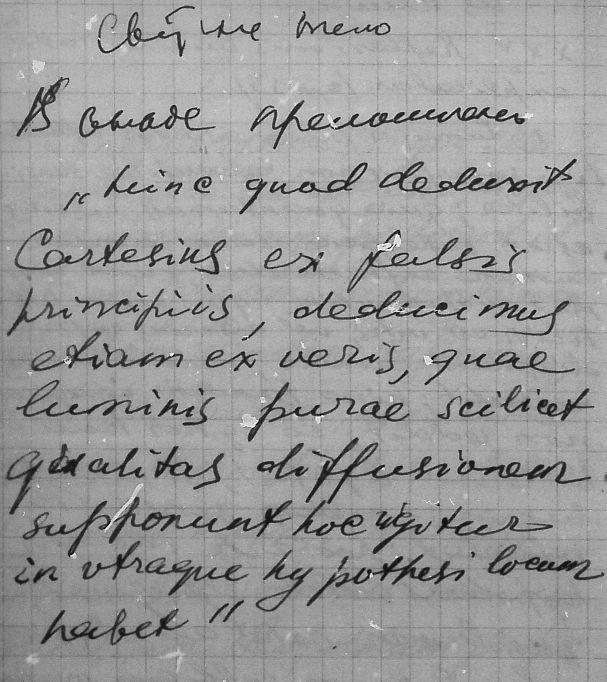 Свет не тело
В опыте преломлень
„hinc quod deduxit
Cartesius ex falsis
principiis, deducimus
etiam ex veris, quae
luminis purae scilicet
qualitas diffusionem
supponunt hoc igitur
in utraque hypothesi locum
habet"